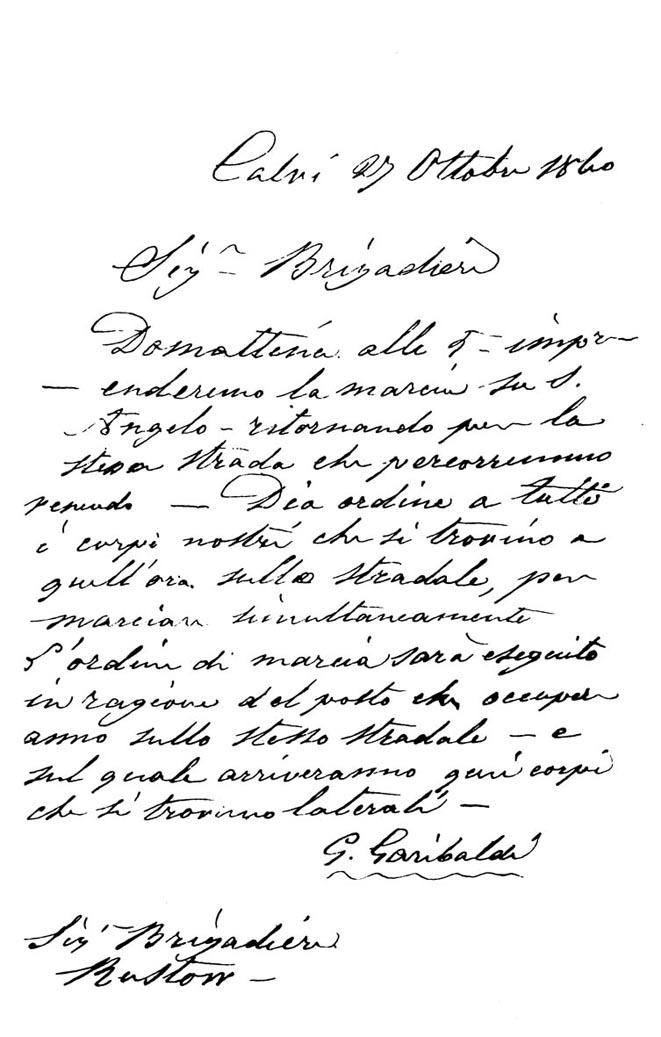 Calvi 27 Ottobre 1860
Sigr Brigadiere
Domattina alle 5 – impr–
– enderemo la marcia su S.
Angelo – ritornando per la
stessa strada che percorremmo
venendo – Dia ordine a tutti
i corpi nostri che si trovino a
quell'ora sullo stradale, per
marciare simultaneamente
L'ordine di marcia sarà eseguito
in ragione del posto che occuper
anno sullo stesso stradale – e
sul quale arriveranno quei corpi
che si trovino laterali –
G. Garibaldi
Sigr Brigadiere
Rustow –